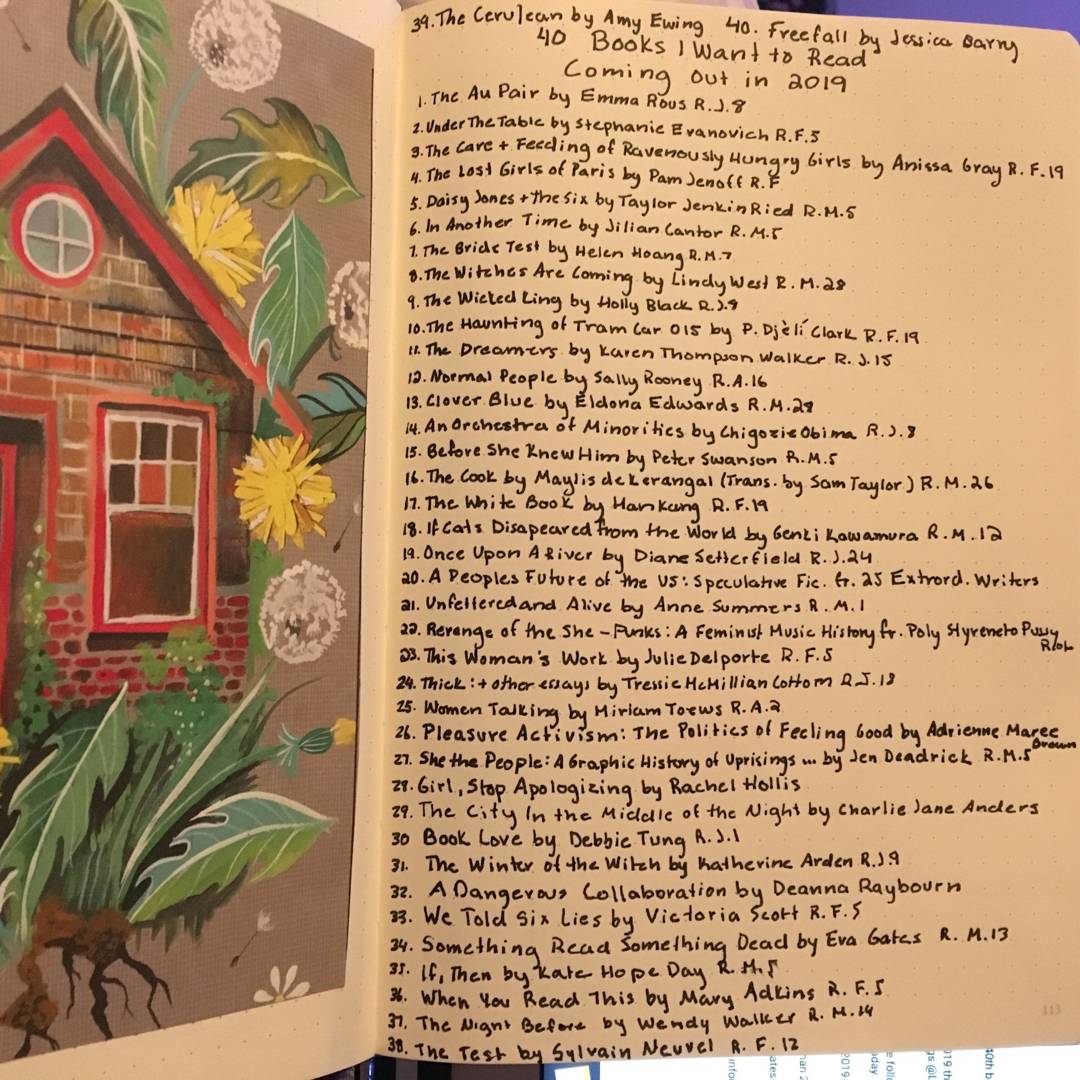 39. The Cerulean by Amy Ewing 40. Freefall by Jessica Barry
40 Books I Want to Read
Coming out in 2019
1. The Au Pair by Emma Rous R.J.8
2. Under The Table by Stephanie Evanovich R.F.5
3. The Care + Feeding of Ravenously Hungry Girls by Anissa Gray R.F.19
4. The Lost Girls of Paris by Pam Jenoff R.F
5. Daisy Jones + the Six by Taylor Jenkin Ried R.M.5
6. In Another Time by Jilian Cantor R.M.5
7. The Bride Test by Helen Hoang R.M.7
8. The Witches Are Coming by Lindy West R.M.28
9. The Wicked King by Holly Black R.J.9
10. The Haunting of Tram Car 015 by P. Djèlí Clark R.F.19
11. The Dreamers by Karen Thompson Walker R.J.15
12. Normal People by Sally Rooney R.A.16
13. Clover Blue by Eldona Edwards R.M.28
14. An Orchestra of Minorities by Chigozie Obima R.J.8
15. Before She Knew Him by Peter Swanson R.M.5
16. The Cook by Maylis de Kerangal (Trans. by Sam Taylor) R.M.26
17. The White Book by Han Kang R.F.19
18. If Cats Disapeared from the World by Genki Kawamura R.M.12
19. Once Upon A River by Diane Setterfield R.J.24
20. A Peoples Future of the US: Speculative Fic. fr. 25 Extrord. Writers
21. Unfettered and Alive by Anne Summers R.M.1
22. Revenge of the She-Punks: A Feminist Music History fr. Poly Styrene to Pussy Riot
23. This Woman's Work by Julie Delporte R.F.5
24. Thick: + other essays by Tressie McMillian Cottom R.J.18
25. Women Talking by Miriam Toews R.A.2
26. Pleasure Activism: The Politics of Feeling Good by Adrienne Maree Brown
27. She the People: A Graphic History of Uprisings ... by Jen Deadrick R.M.5
28. Girl, Stop Apologizing by Rachel Hollis
29. The City In the Middle of the Night by Charlie Jane Anders
30 Book Love by Debbie Tung R.J.1
31. The Winter of the Witch by Katherine Arden R.J.9
32. A Dangerous Collaboration by Deanna Raybourn
33. We Told Six Lies by Victoria Scott R.F.5
34. Something Read Something Dead by Eva Gates R.M.13
35. If, Then by Kate Hope Day R.M.5
36. When You Read This by Mary Adkins R.F.5
37. The Night Before by Wendy Walker R.M.14
38. The Test by Sylvain Neuvel R.F.12
113